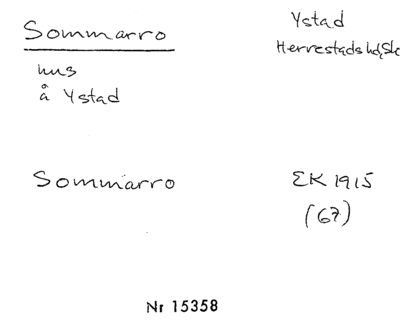 Sommarro
Ystad
Herrestads hd, Sk
hus
å Ystad
Sommarro
EK 1915
(67)
Nr 15358